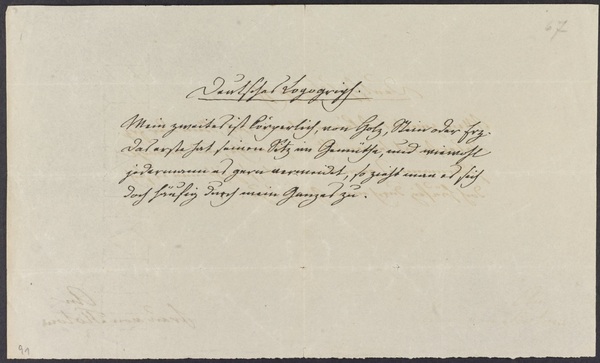 67
Deutsches Logogriph.
Mein zweites ist körperlich, von Holz, Stein oder Erz.
Das erste hat seinen Sitz im Gemüthe, und wiewohl
jedermann es gern vermeidet, so zieht man es sich
doch häufig durch mein Ganzes zu.